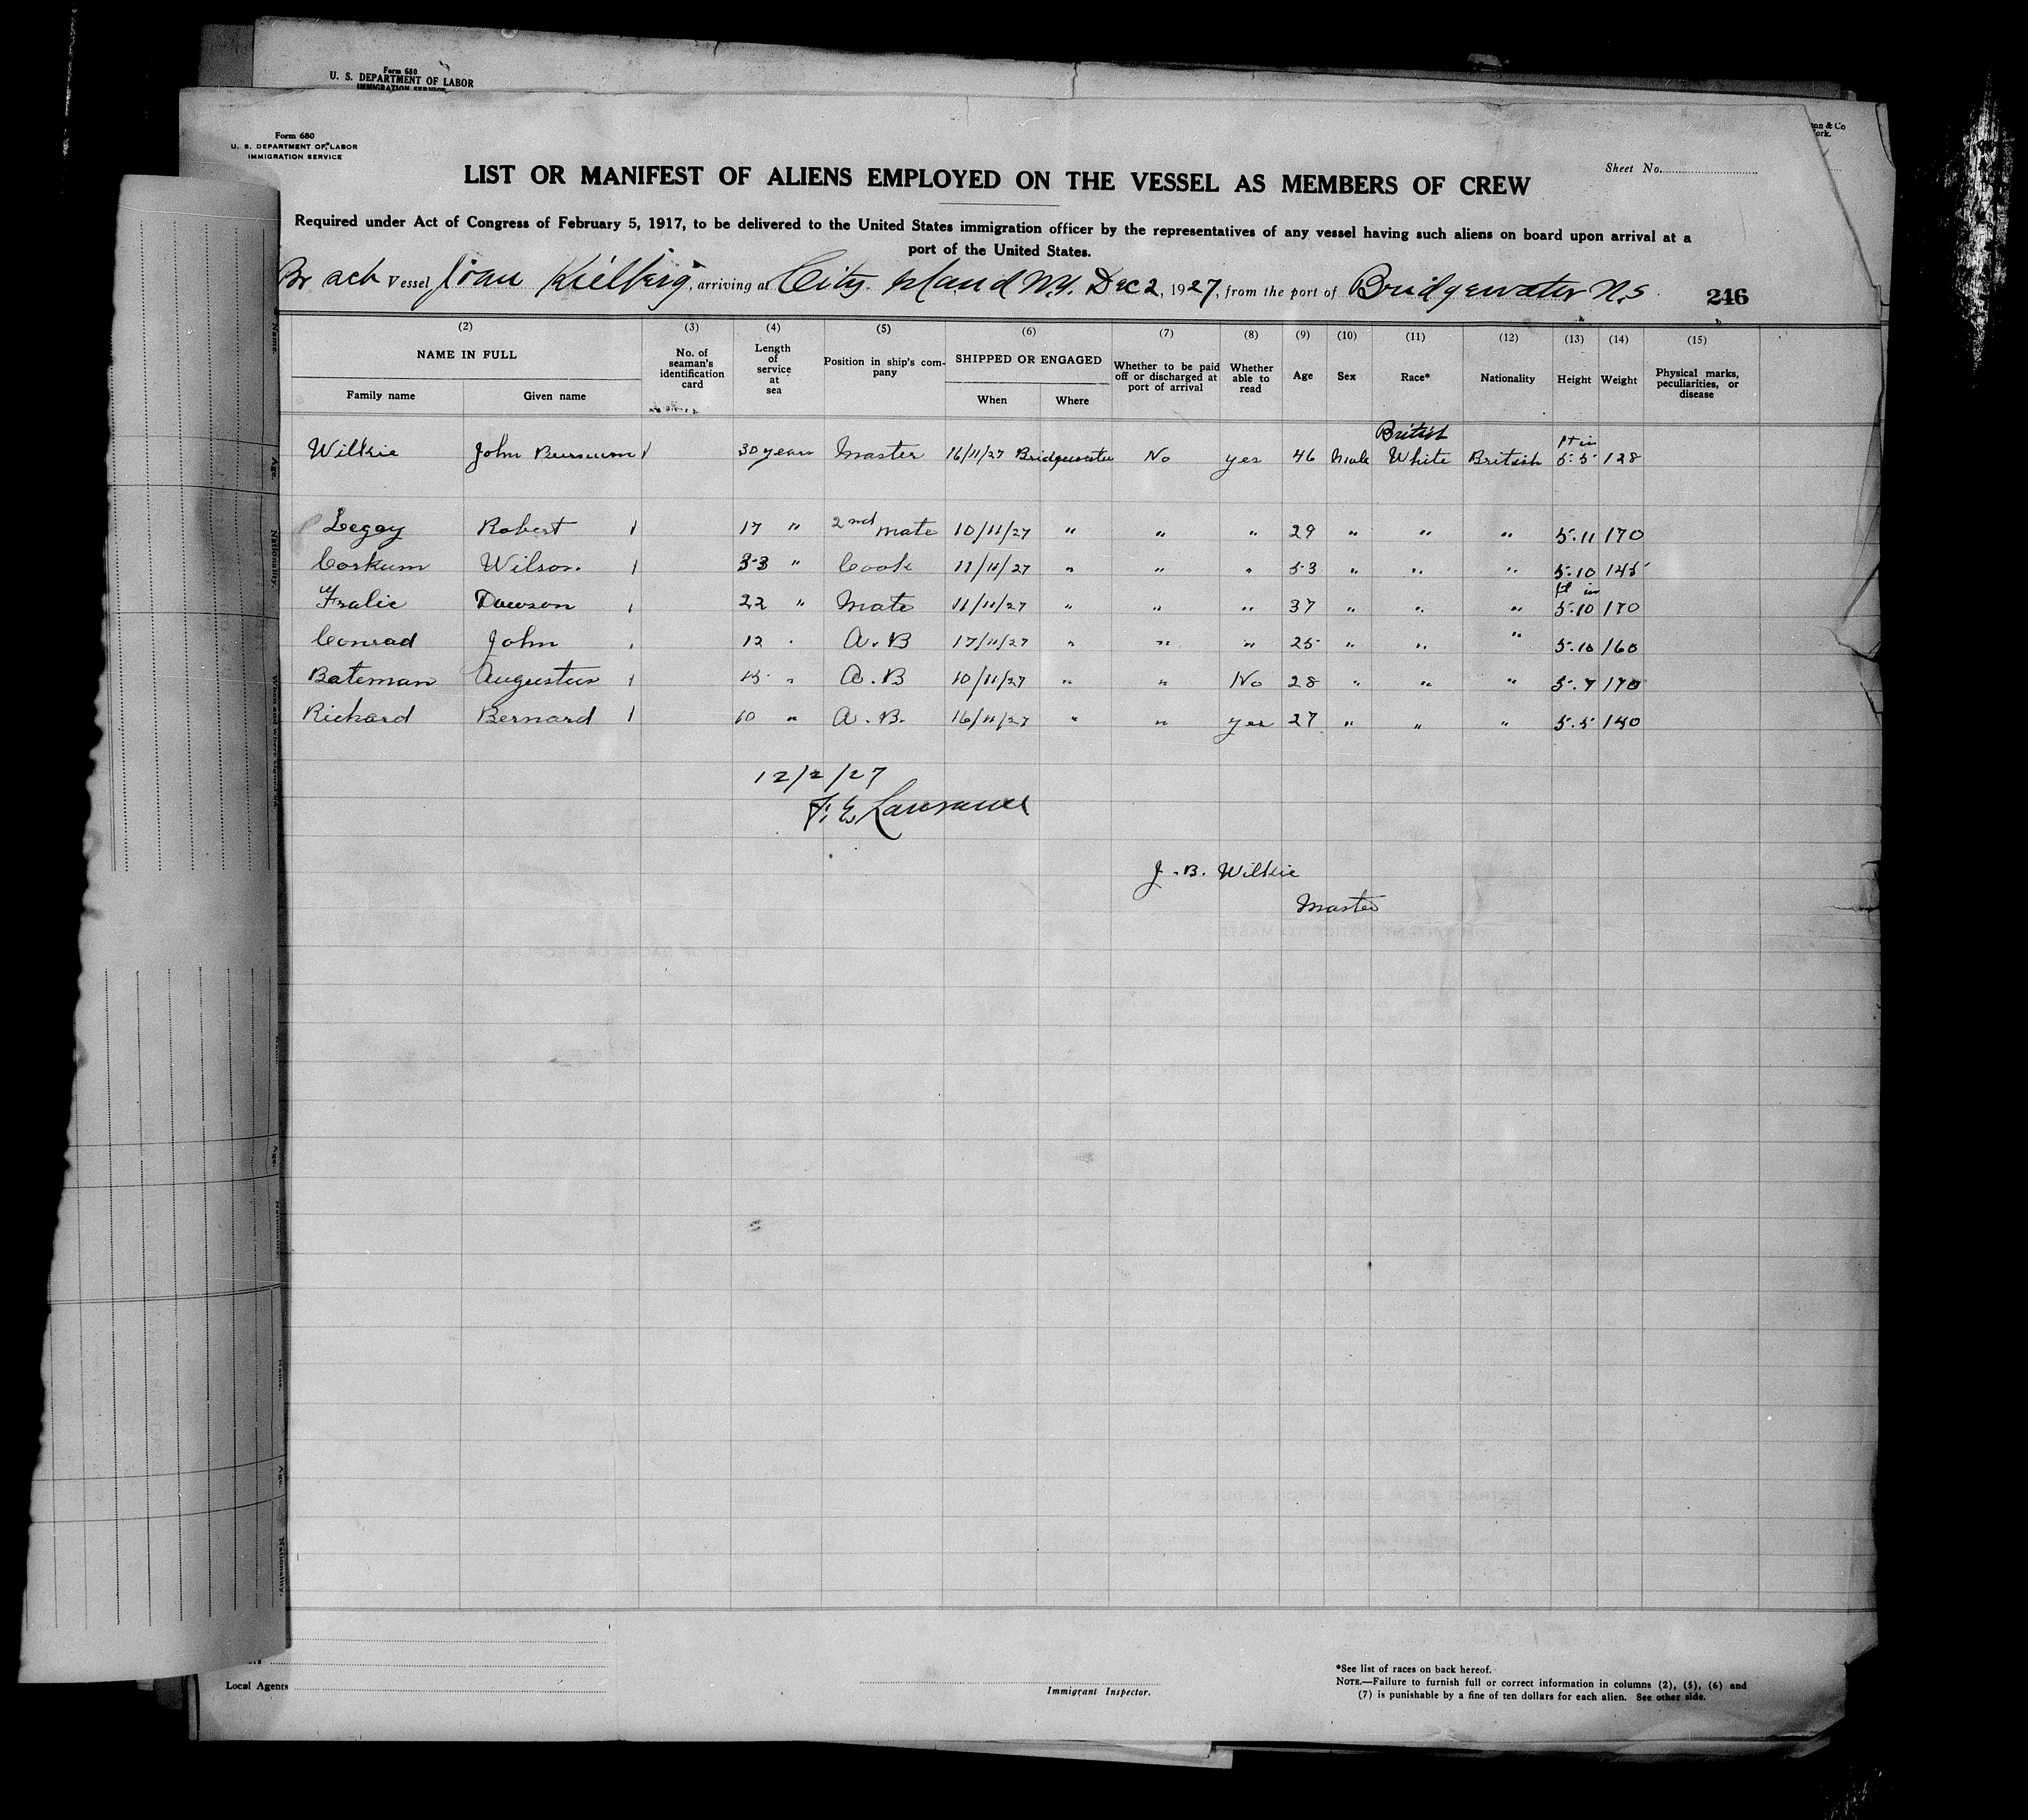 Form 680
U. S. DEPARTMENT OF LABOR
IMMIGRATION SERVICE
Form 680
U. S. DEPARTMENT OF LABOR
IMMIGRATION SERVICE
nn & Co
ork.
Sheet No.
LIST OR MANIFEST OF ALIENS EMPLOYED ON THE VESSEL AS MEMBERS OF CREW
Required under Act of Congress of February 5, 1917, to be delivered to the United States immigration officer by the representatives of any vessel having such aliens on board upon arrival at a
port of the United States.
Br sch Vessel Joan Kielberg, arriving at City Island N.Y. Dec 2, 1927, from the port of Bridgewater N.S 246
(2) (3) (4) (5) (6) (7) (8) (9) (10) (11) (12) (13) (14) (15)
NAME IN FULL
Family name Given name
No. of seaman's identification card
Length of service at sea
Position in ship's company
SHIPPED OR ENGAGED
When Where
Whether to be paid off or discharged at port of arrival
Whether able to read
Age Sex Race* Nationality Height Weight
Physical marks, peculiarities, or disease
British ft in
Wilkie John 30 years Master 16/11/27 Bridgewater No yes 46 Male White British 5.5 128
Legay Robert 17 " 2nd Mate 10/11/27 " " " 29 " " " 5.11 170
Corkum Wilson 33 " Cook 11/11/27 " " " 53 " " " 5.10 145
ft in
Fralic Dawson 22 " Mate 11/11/27 " " " 37 " " " 5.10 170
Conrad John 12 " A.B 17/11/27 " " " 25 " " " 5.10 160
Bateman Augustus 15 " A.B 10/11/27 " " No 28 " " " 5.7 170
Richard Bernard 10 " A.B. 16/11/27 " " yes 27 " " " 5.5 140
12/2/27
F. E. Lawrance
J. B. Wilkie
Master
Local Agents
Immigrant Inspector.
*See list of races on back hereof.
NOTE.—Failure to furnish full or correct information in columns (2), (5), (6) and
(7) is punishable by a fine of ten dollars for each alien. See other side.